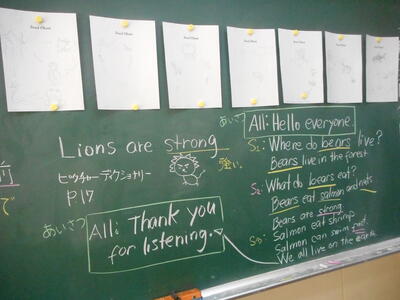 Food Chart
Food Chart
Food Chart
Food Chart
Food Chart
Lions are strong
強い
ピクチャーディクショナリー
P17
あいさつ
All: Thank you
for listening.
あいさつ
All: Hello everyone.
S1: Where do bears live?
Bears live in the forest
S2: What do bears eat?
Bears eat salmon and nuts.
Bears are strong.
Salmon eat shrimp
Salmon can swim
We all live on the earth
で